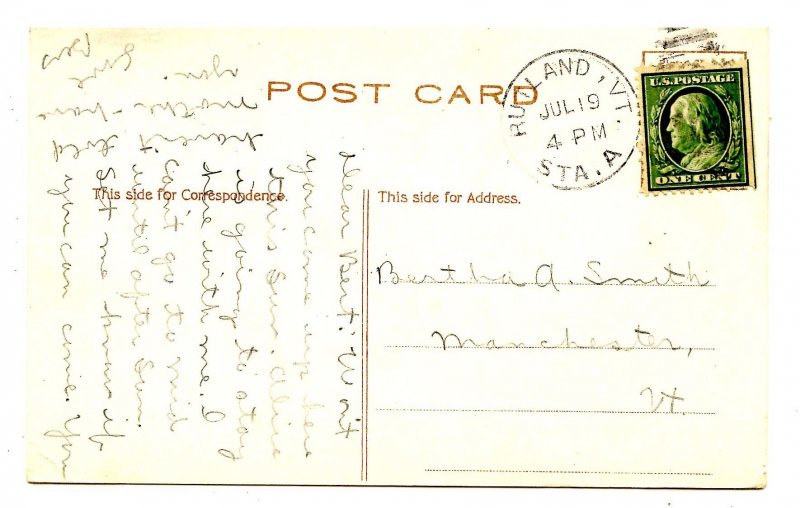 POST CARD
RUTLAND, VT.
JUL 19
4 PM
STA. A
U.S. POSTAGE
ONE CENT
This side for Correspondence.
This side for Address.
Dear Bert: Wont
you come up here
this Sun. Aline
is going to stay
here with me. I
can't go to mid
until after Sun.
Let me know if
you can come. You
havent told
mother - have
you. Love
Bertha A. Smith
Manchester,
Vt.